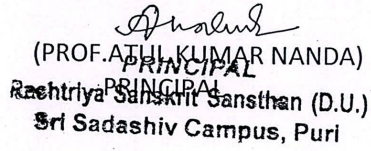 (PROF.ATUL KUMAR NANDA)
PRINCIPAL
PRINCIPAL
Rashtriya Sanskrit Sansthan (D.U.)
Sri Sadashiv Campus, Puri